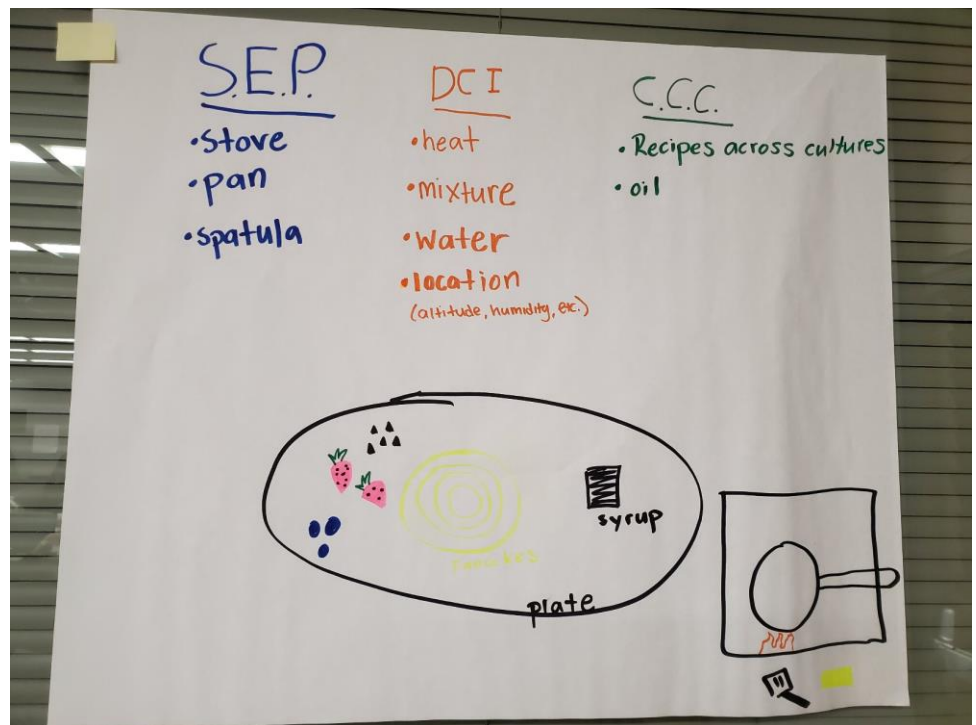 S.E.P.
• stove
• pan
• spatula
DCI
• heat
• mixture
• water
• location
(altitude, humidity, etc.)
C.C.C.
• Recipes across cultures
• oil
pancakes
syrup
plate